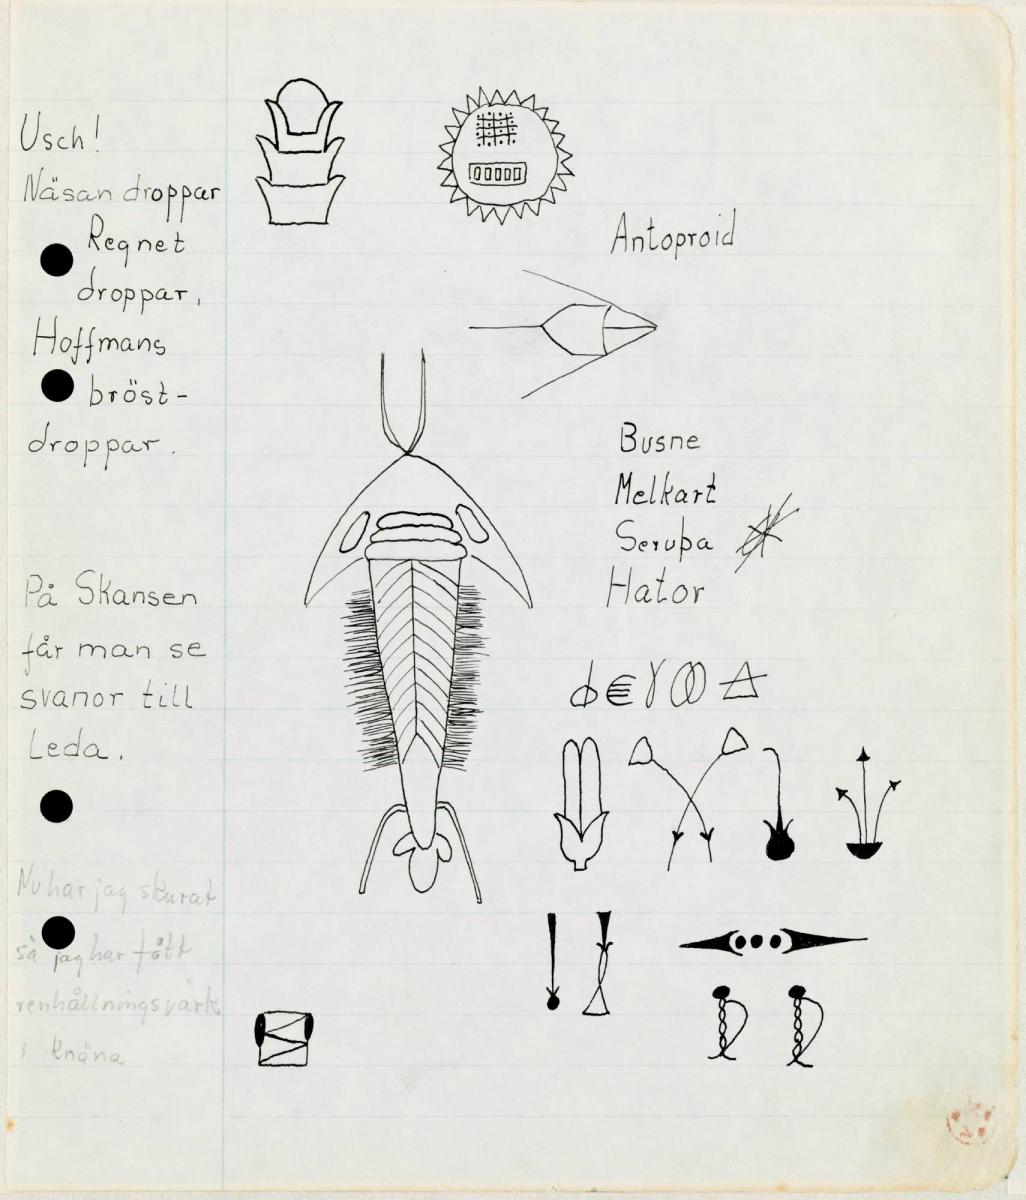 Usch!
Näsan droppar
Regnet
droppar,
Hoffmans
bröst-
droppar.
På Skansen
får man se
svanor till
Leda.
Nu har jag skurat
så jag har fått
renhållningsvärk
i knäna
Antoproid
Busne
Melkart
Serupa
Hator